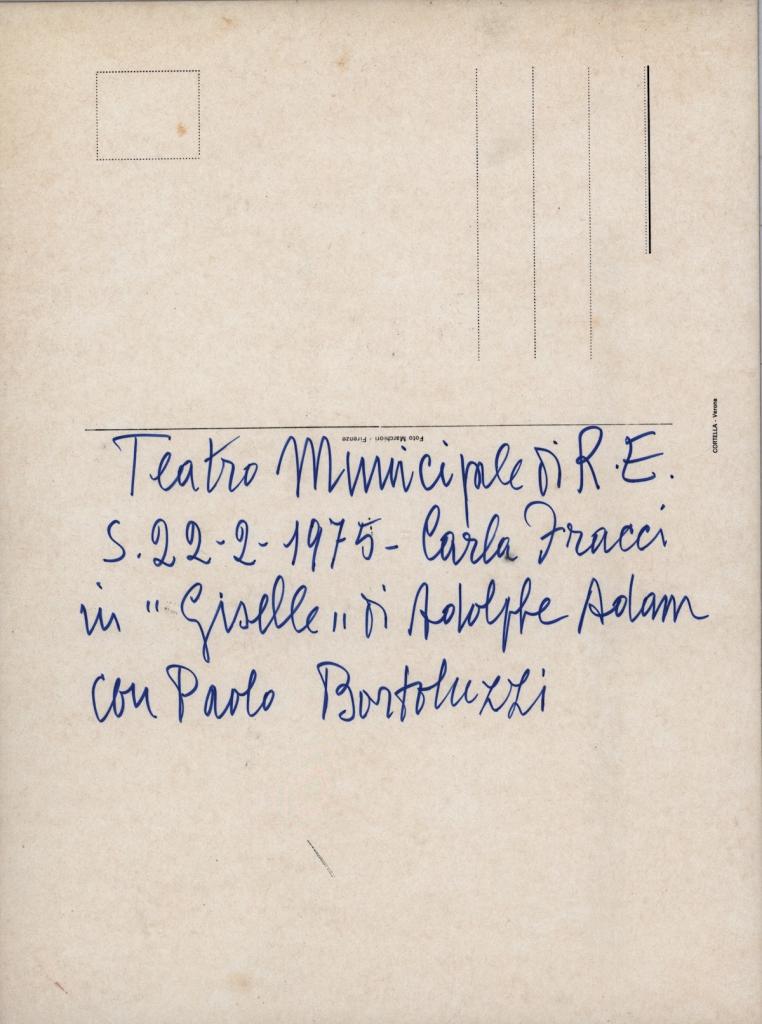 Foto Marchiori - Firenze
CORTELLA - Verona
Teatro Municipale di R.E.
S. 22-2-1975- Carla Fracci
in "Giselle" di Adolphe Adam
con Paolo Bortoluzzi